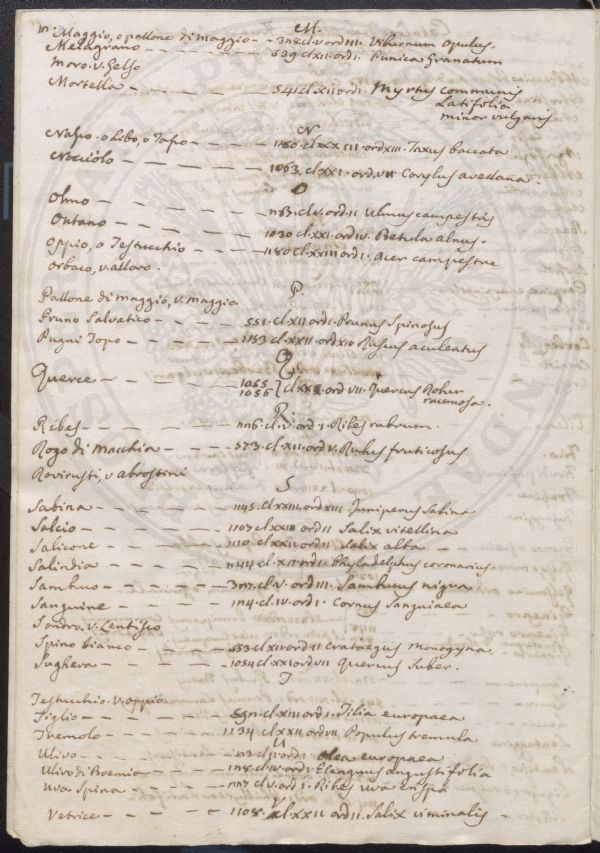 M.
Maggio, o pallone di maggio - - 318. cl. v. ord III. Viburnum opulus.
Melagrano - - - - - - - 639 cl XII. ord I. Punica Granatum
Moro. v. Gelso
Mortella - - - - - 541. cl. XII ord I. Myrtus communis
Latifolia
minor vulgaris
N
Nasso. o Libo, o Tasso - - - - 1180. cl XXIII. ord XIII. Taxus baccata
Nocciolo - - - - - 1063. cl XXI. ord. VII. Corylus avellana.
O
Olmo - - - - - 1183. cl. v. ord. II Ulmus campestris
Ontano - - - - - 1030 cl. XXI. ord IV. Betula alnus.
Oppio, o Testucchio - - - - 1180 cl. XXIII ord I. Acer campestre
Orbaco, v. alloro.
P.
Pallone di maggio, v. maggio
Pruno Salvatico - - - - 551. cl. XII ord I. Prunus Spinosus
Pugni Topo - - - - 1153 cl. XXII. ord XII Ruscus aculeatus
Q
Querce - - - - - 1055
1056 } cl XXI ord VII. Quercus Robur
racemosa.
R.
Ribes - - - - - 1116. cl. v. ord. I. Ribes rubrum.
Rogo di Macchia - - - - 573. cl. XII. ord v. Rubus fruticosus
Rovirusti, v abrostini
S
Sabina - - - - - 1145. cl XXIII. ord XIII. Juniperus Sabina
Salcio - - - - - 1107 cl XXII ord II Salix vitellina
Salicone - - - - - 1110 cl XXII ord II Salix alba -
Salindia - - - - - cl. XII ord I. Phyladelphus coronarius.
Sambuco - - - - - 317. cl. v. ord. III. Sambucus nigra
Sanguine - - - - - 1114. cl. IV. ord I. Cornus Sanguinea
Sondro. v. Lentisco
Spino bianco - - - - 553 cl XII ord II Crataegus Monogyna
Sughera - - - - - 1054 cl XXI ord VII Quercus Suber.
T
Testucchio. v. oppio.
Tiglio - - - - - cl. XIII ord I. Tilia europaea
Tremolo - - - - - 1134 cl. XXII ord VII Populus tremula
U
Ulivo - - - - - cl. II ord I. Olea europaea
Ulivo di Boemia - - - - 1118. cl. IV. ord I. Eleagnus angustifolia
Uva Spina - - - - - 1117 cl. v. ord. I. Ribes uva crispa
V
Vetrice - - - - - 1108. cl. XXII ord II. Salix viminalis -